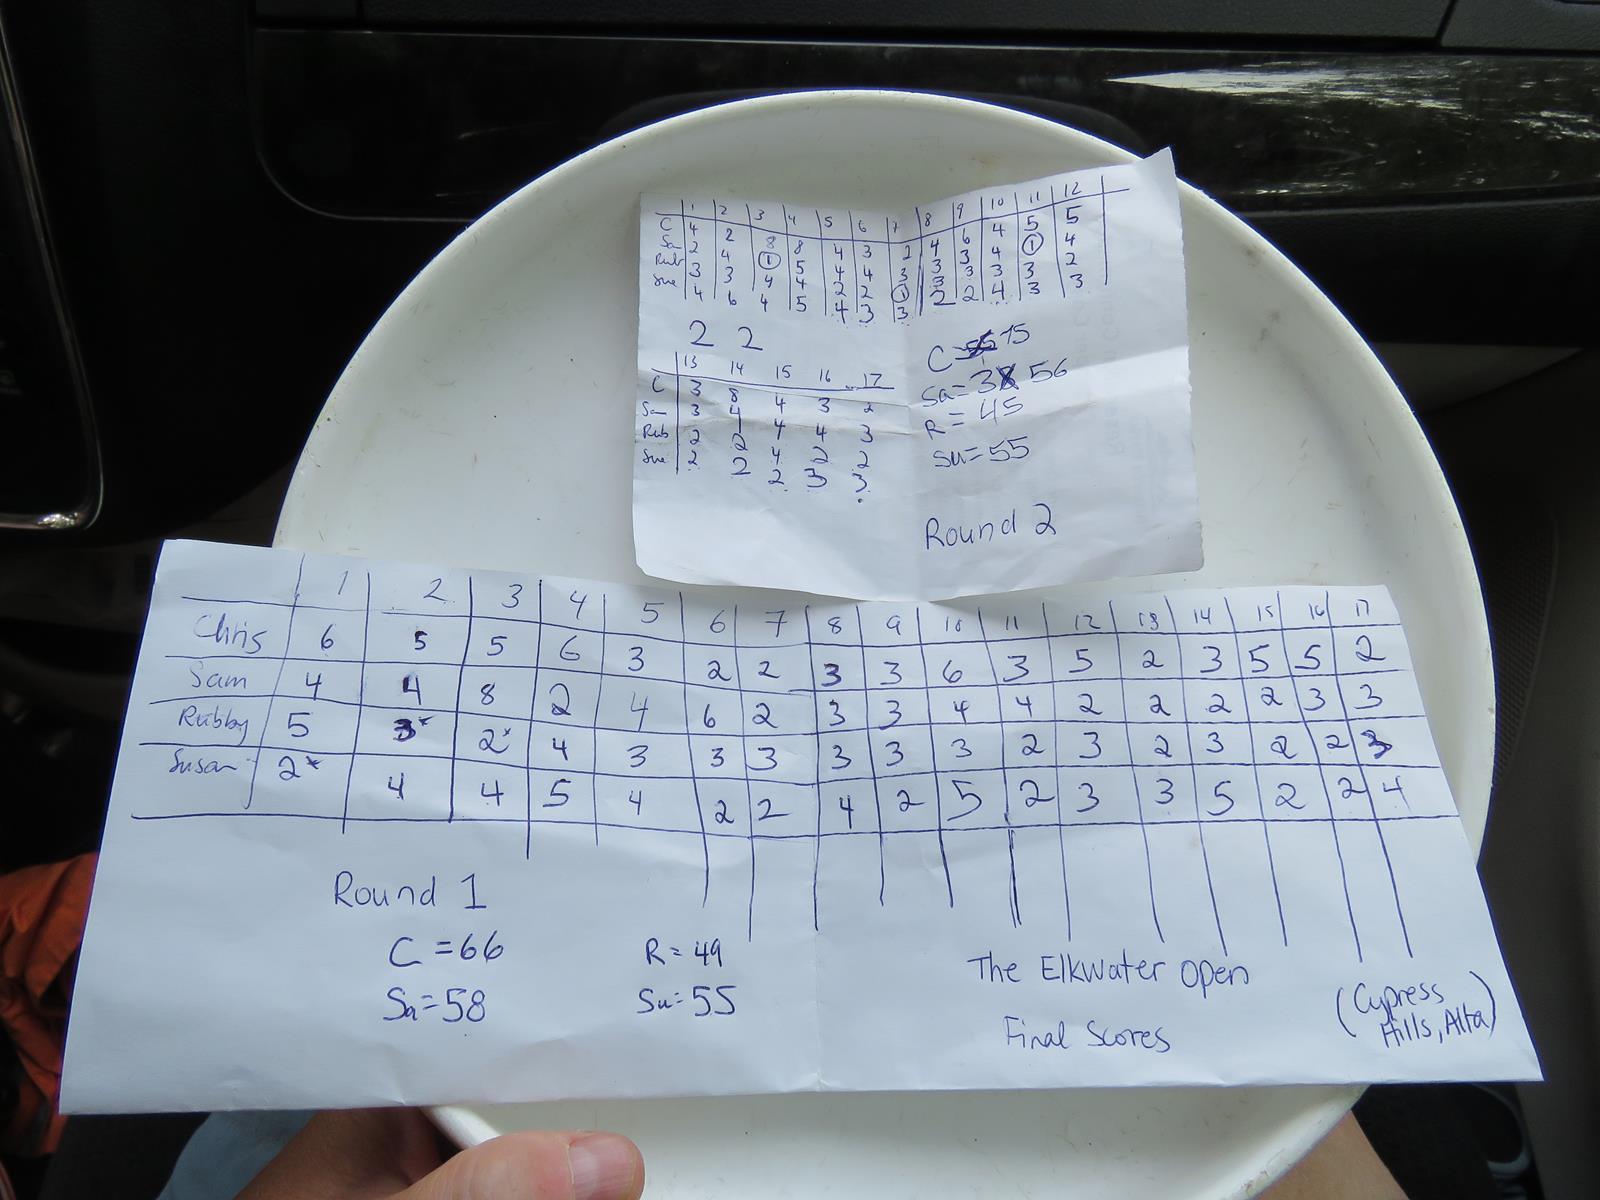 1 2 3 4 5 6 7 8 9 10 11 12
C 4 2 8 8 4 3 2 4 6 4 5 5
Sa 2 4 1 5 4 4 3 3 3 4 1 4
Rub 3 3 4 4 2 2 1 3 3 3 3 2
Sue 4 6 4 5 4 3 3 2 2 4 3 3
2 2
13 14 15 16 17
C 3 8 4 3 2
Sam 3 4 4 4 3
Rub 2 2 4 2 2
Sue 2 2 2 3 3
C = 75
Sa = 56
R = 45
Su = 55
Round 2
1 2 3 4 5 6 7 8 9 10 11 12 13 14 15 16 17
Chris 6 5 5 6 3 2 2 3 3 6 3 5 2 3 5 5 2
Sam 4 4 8 2 4 6 2 3 3 4 4 2 2 2 2 3 3
Rubby 5 3* 2* 4 3 3 3 3 3 3 2 3 2 3 2 2 3
Susan 2* 4 4 5 4 2 2 4 2 5 2 3 3 5 2 2 4
Round 1
C = 66
R = 49
Sa = 58
Su = 55
The Elkwater Open
Final Scores
(Cypress
Hills, Alta)